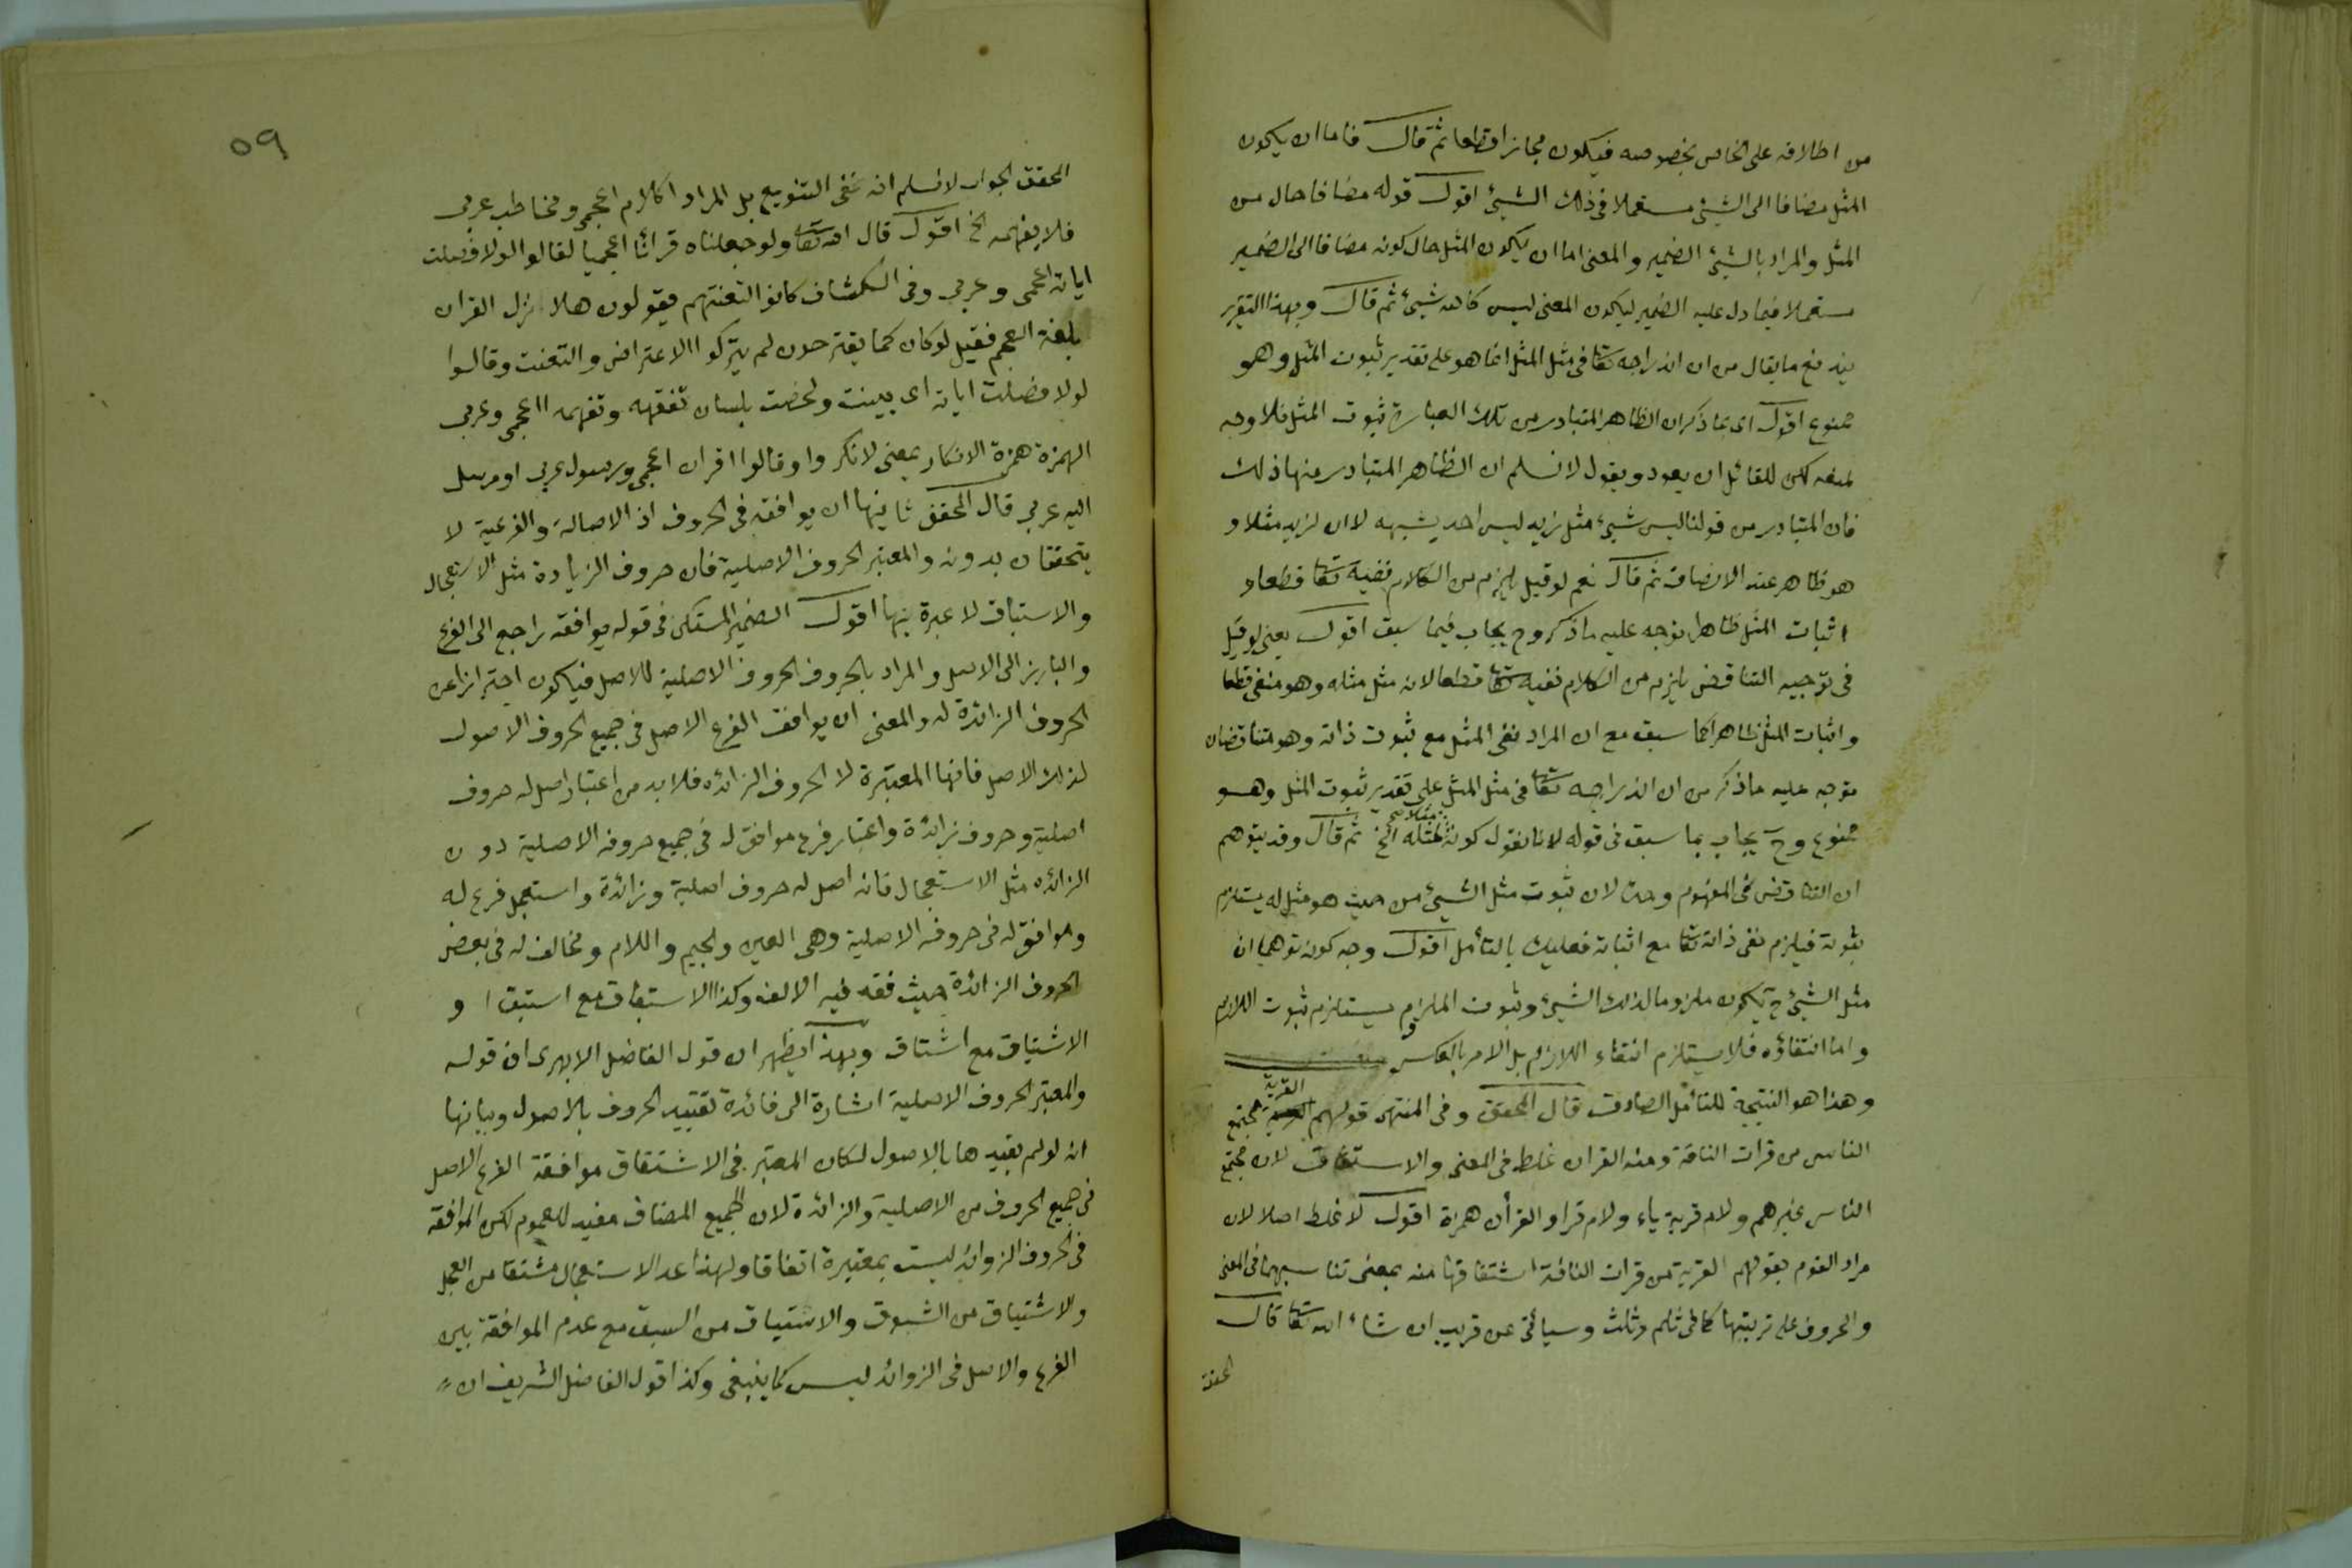 من اطلاقه على الخاص بخصوصه فيكون مجازا قطعا ثم قال فاما ان يكون
المثل مضافا الى الشيئ مستعملا فى ذلك الشيئ اقول قوله مضافا حال من
المثل والمراد بالشيئ الضمير والمعنى اما ان يكون المثل حال كونه مضافا الى الضمير
مستعملا فيما دل عليه الضمير ليكون المعنى ليس كالله شيئ ثم قال وبهذا التقرير
يندفع ما يقال من ان اندراجه تعا فى مثل المثل انما هو على تقدير ثبوت المثل وهو
ممنوع اقول اى بما ذكر ان الظاهر المتبادر من تلك العبارة ثبوت المثل فلا وجه
لمنعه لكن للقائل ان يعود ويقول لانسلم ان الظاهر المتبادر منها ذلك
فان المتبادر من قولنا ليس شيئ مثل زيد ليس احد يشبهه لا ان لزيد مثلا و
هو ظاهر عند الانصاف ثم قال نعم لو قيل يلزم من الكلام نفيه تعا قطعا و
اثبات المثل ظاهرا يتوجه عليه ما ذكر وح يجاب فيما سبق اقول يعنى لو قيل
فى توجيه التناقض يلزم من الكلام نفيه تعا قطعا لانه مثل مثله وهو منفى قطعا
واثبات المثل ظاهرا كما سبق مع ان المراد نفى المثل مع ثبوت ذاته وهو متناقضان
يتوجه عليه ما ذكر من ان اندراجه تعا فى مثل المثل على تقدير ثبوت المثل وهو
ممنوع وح يجاب بما سبق فى قوله لانا نقول كونه مثلا لمثله الخ ثم قال وقد يتوهم
ان التناقض فى المفهوم وحده لان ثبوت مثل الشيئ من حيث هو مثل له يستلزم
ثبوته فيلزم نفى ذاته تعا مع اثباته فعليك بالتأمل اقول وجه كونه توهما ان
مثل الشيئ ح يكون ملزوما لذلك الشيئ وثبوت الملزوم يستلزم ثبوت اللازم
واما انتفاؤه فلا يستلزم انتفاء اللازم بل الامر بالعكس
وهذا هو النتيجة للتأمل الصادق قال المحقق وفى المنتهى قولهم القرية مجتمع
الناس من قرات الناقة ومنه القران غلط فى المعنى والاشتقاق لان مجتمع
الناس غيرهم ولام قرية ياء ولام قرا والقرأن همزة اقول لا غلط اصلا لان
مراد القوم بقولهم القرية من قرات الناقة اشتقاقها منه بمعنى تناسبهما فى المعنى
والحروف على تربيتها كما فى ثلم وثلث وسيأتى عن قريب ان شاء الله تعا قال
المحقق
٥٩
المحقق الجواب لانسلم انه نفى التنويع بل المراد اكلام اعجمى ومخاطب عربى
فلا يفهمه الخ اقول قال الله تعا ولو جعلناه قرانا اعجميا لقالوا لولا فصلت
اياته اعجمى وعربى وفى الكشاف كانوا لتعنتهم يقولون هلا نزل القران
بلغة العجم فقيل لو كان كما يقترحون لم يتركوا الاعتراض والتعنت وقالوا
لولا فصلت اياته اى بينت ولخصت بلسان نفقهه ونفهمه ااعجمى وعربى
الهمزة همزة الانكار يعنى لانكروا وقالوا اقران اعجمى ورسول عربى او مرسل
اليه عربى قال المحقق ثانيها ان يوافقه فى الحروف اذ الاصالة والفرعية لا
يتحققان بدونه والمعتبر الحروف الاصلية فان حروف الزيادة مثل الاستعجال
والاستباق لا عبرة بها اقول الضمير المستكن فى قوله يوافقه راجع الى الفرع
والبارز الى الاصل والمراد بالحروف الحروف الاصلية للاصل فيكون احترازا عن
الحروف الزائدة له والمعنى ان يوافق الفرع الاصل فى جميع الحروف الاصول
لذلك الاصل فانها المعتبرة لا الحروف الزائده فلا بد من اعتبار اصل له حروف
اصلية وحروف زائدة واعتبار فرع موافق له فى جميع حروفه الاصلية دون
الزائده مثل الاستعجال فانه اصل له حروف اصلية وزائدة واستعجل فرع له
وموافق له فى حروفه الاصلية وهى العين والجيم واللام ومخالف له فى بعض
الحروف الزائدة حيث فقد فيه الالف وكذا الاستباق مع استبق او
الاشتياق مع اشتاق وبهذا يظهر ان قول الفاضل الابهرى ان قوله
والمعتبر الحروف الاصلية اشارة الى فائدة تقييد الحروف بالاصول وبيانها
انه لو لم يقيدها بالاصول لكان المعتبر فى الاشتقاق موافقة الفرع الاصل
فى جميع الحروف من الاصلية والزائدة لان الجميع المضاف مفيد للعموم لكن الموافقة
فى الحروف الزوائد ليست بمعتبرة اتفاقا ولهذا عد الاستعجال مشتقا من العجل
والاشتياق من الشوق والاستباق من السبق مع عدم الموافقة بين
الفرع والاصل فى الزوائد ليس كما ينبغى وكذا قول الفاضل الشريف ان